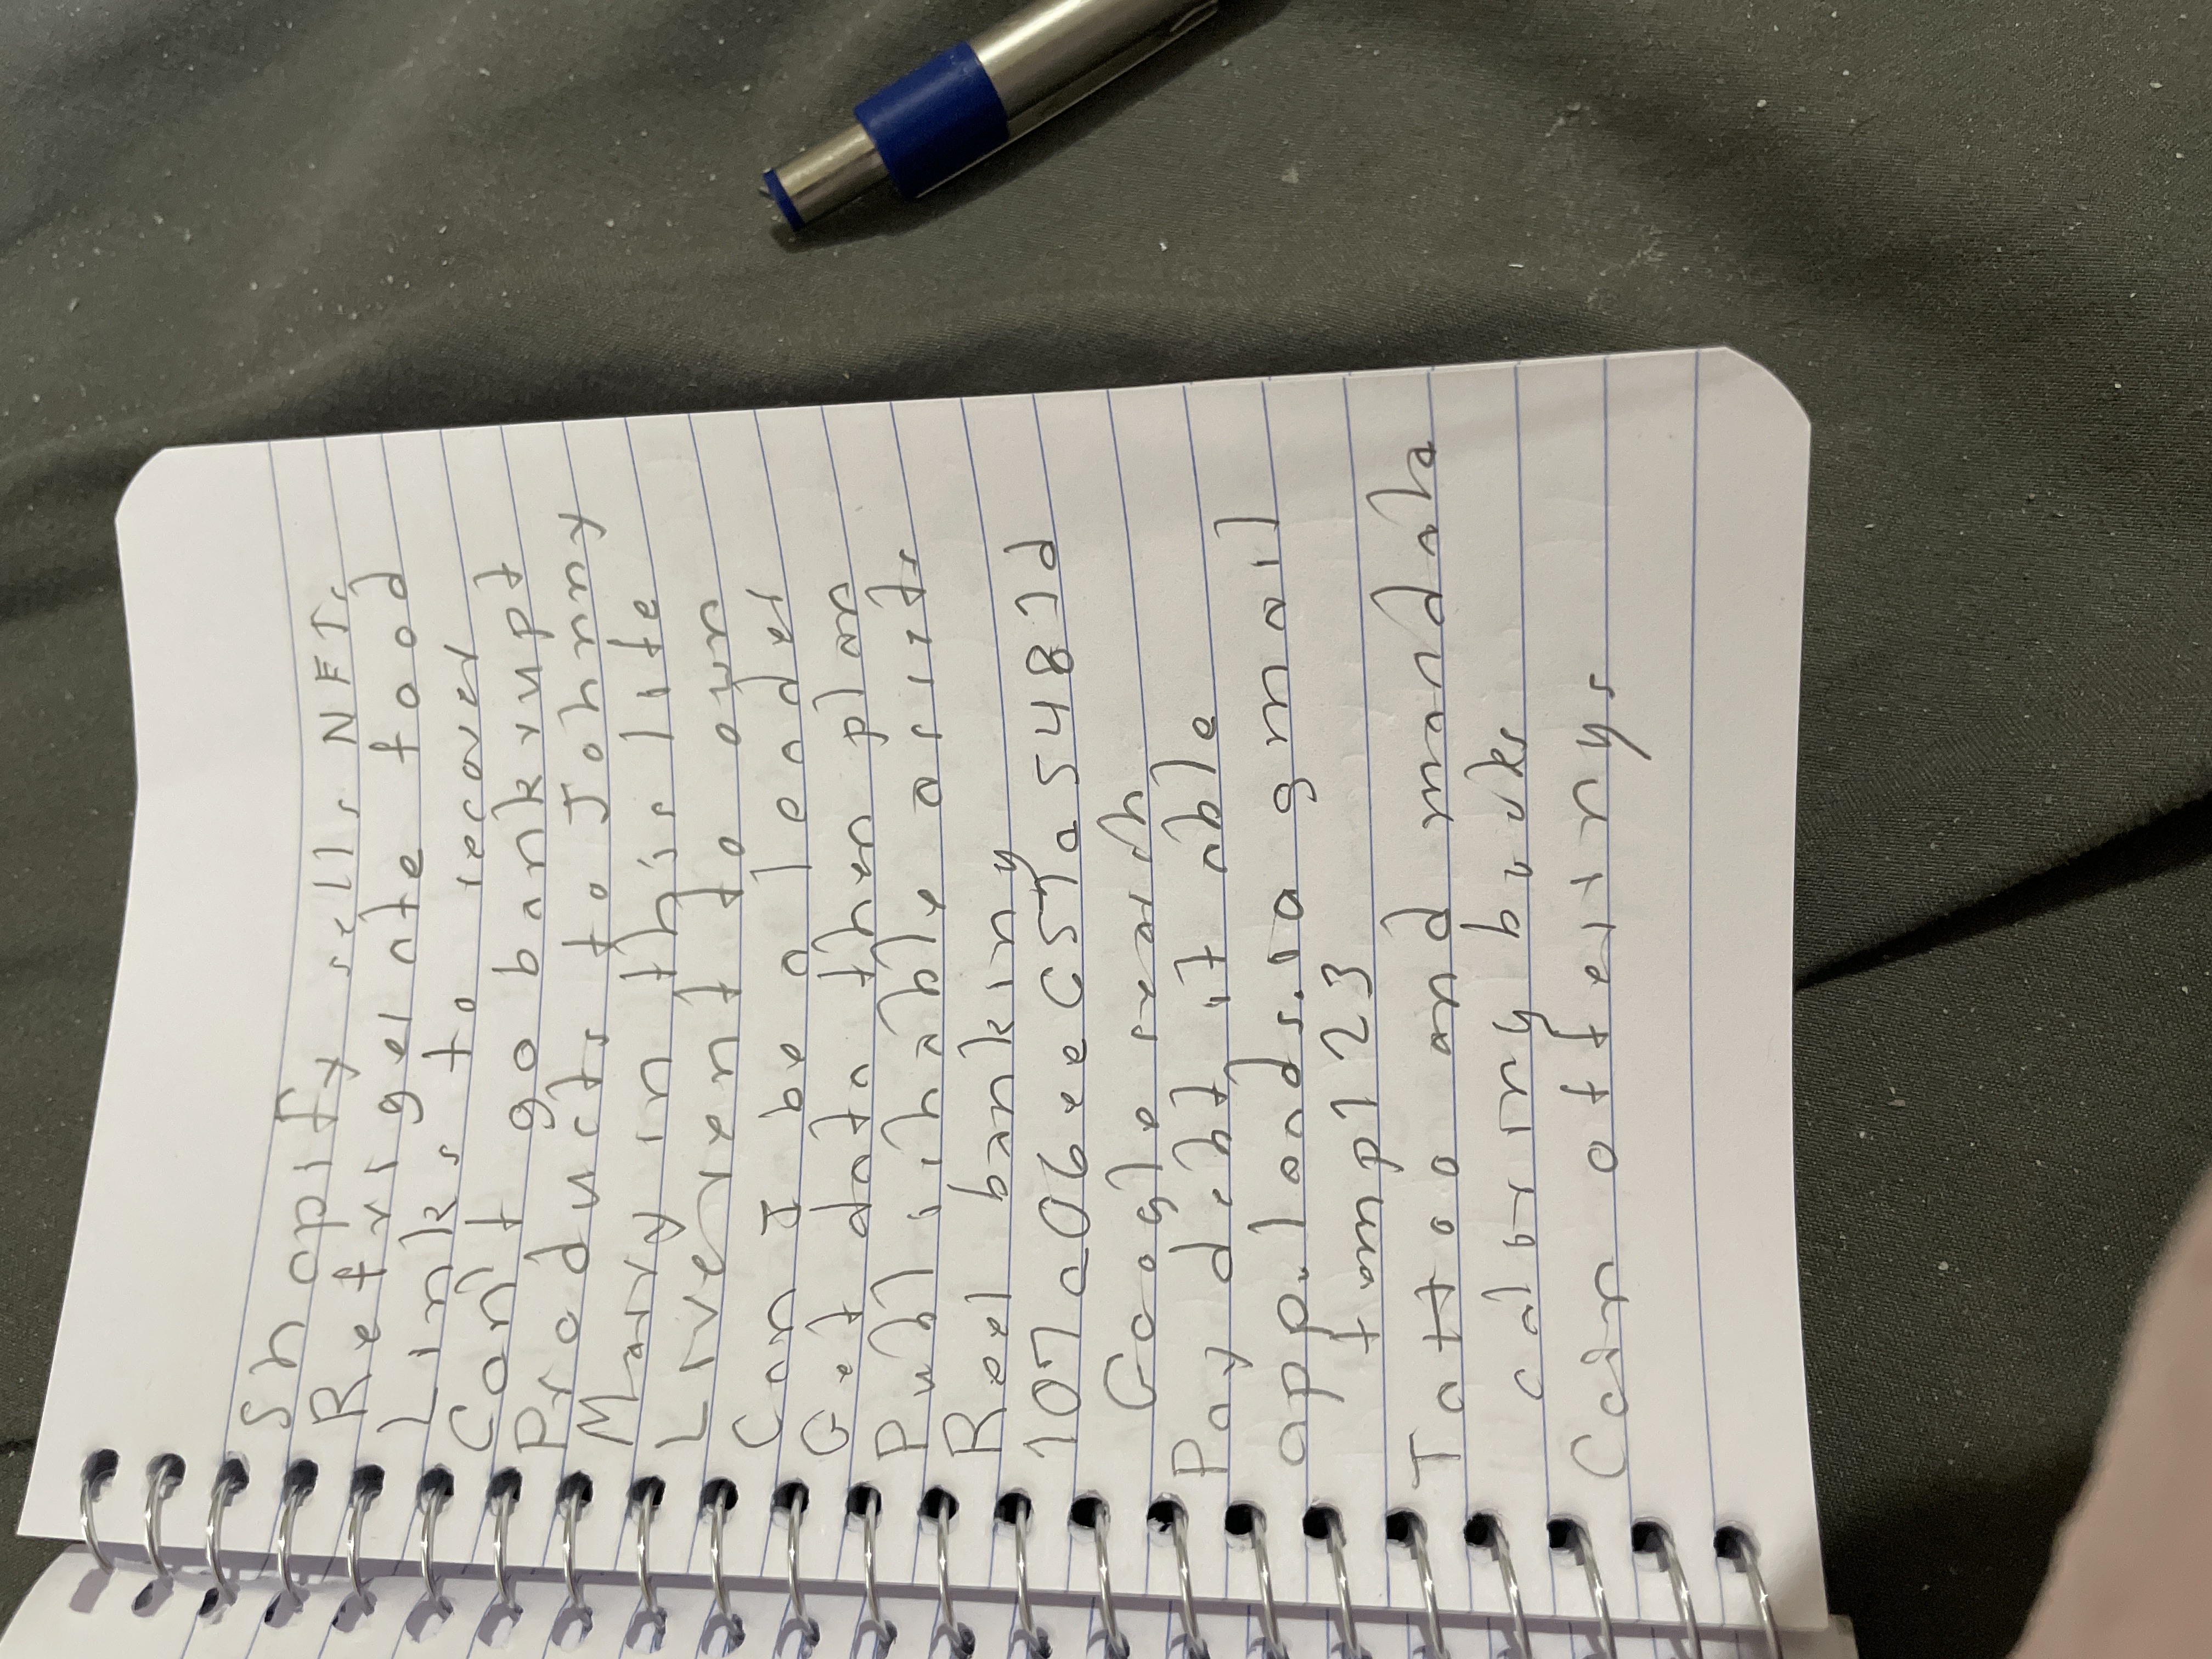 Shopify sells NFTs
Refrigerate food
Links to recover
Can't go bankrupt
Products to Johnny
Mary in this life
Liverent to own
Can I be a leader
Get data then plan
Publishable assits
Real banking
107a06eec59a5481P
Google search
Pay debt it able
app.loads.io gmail
temp123
Tattoo and mandala
calbring bucks
Can offerings